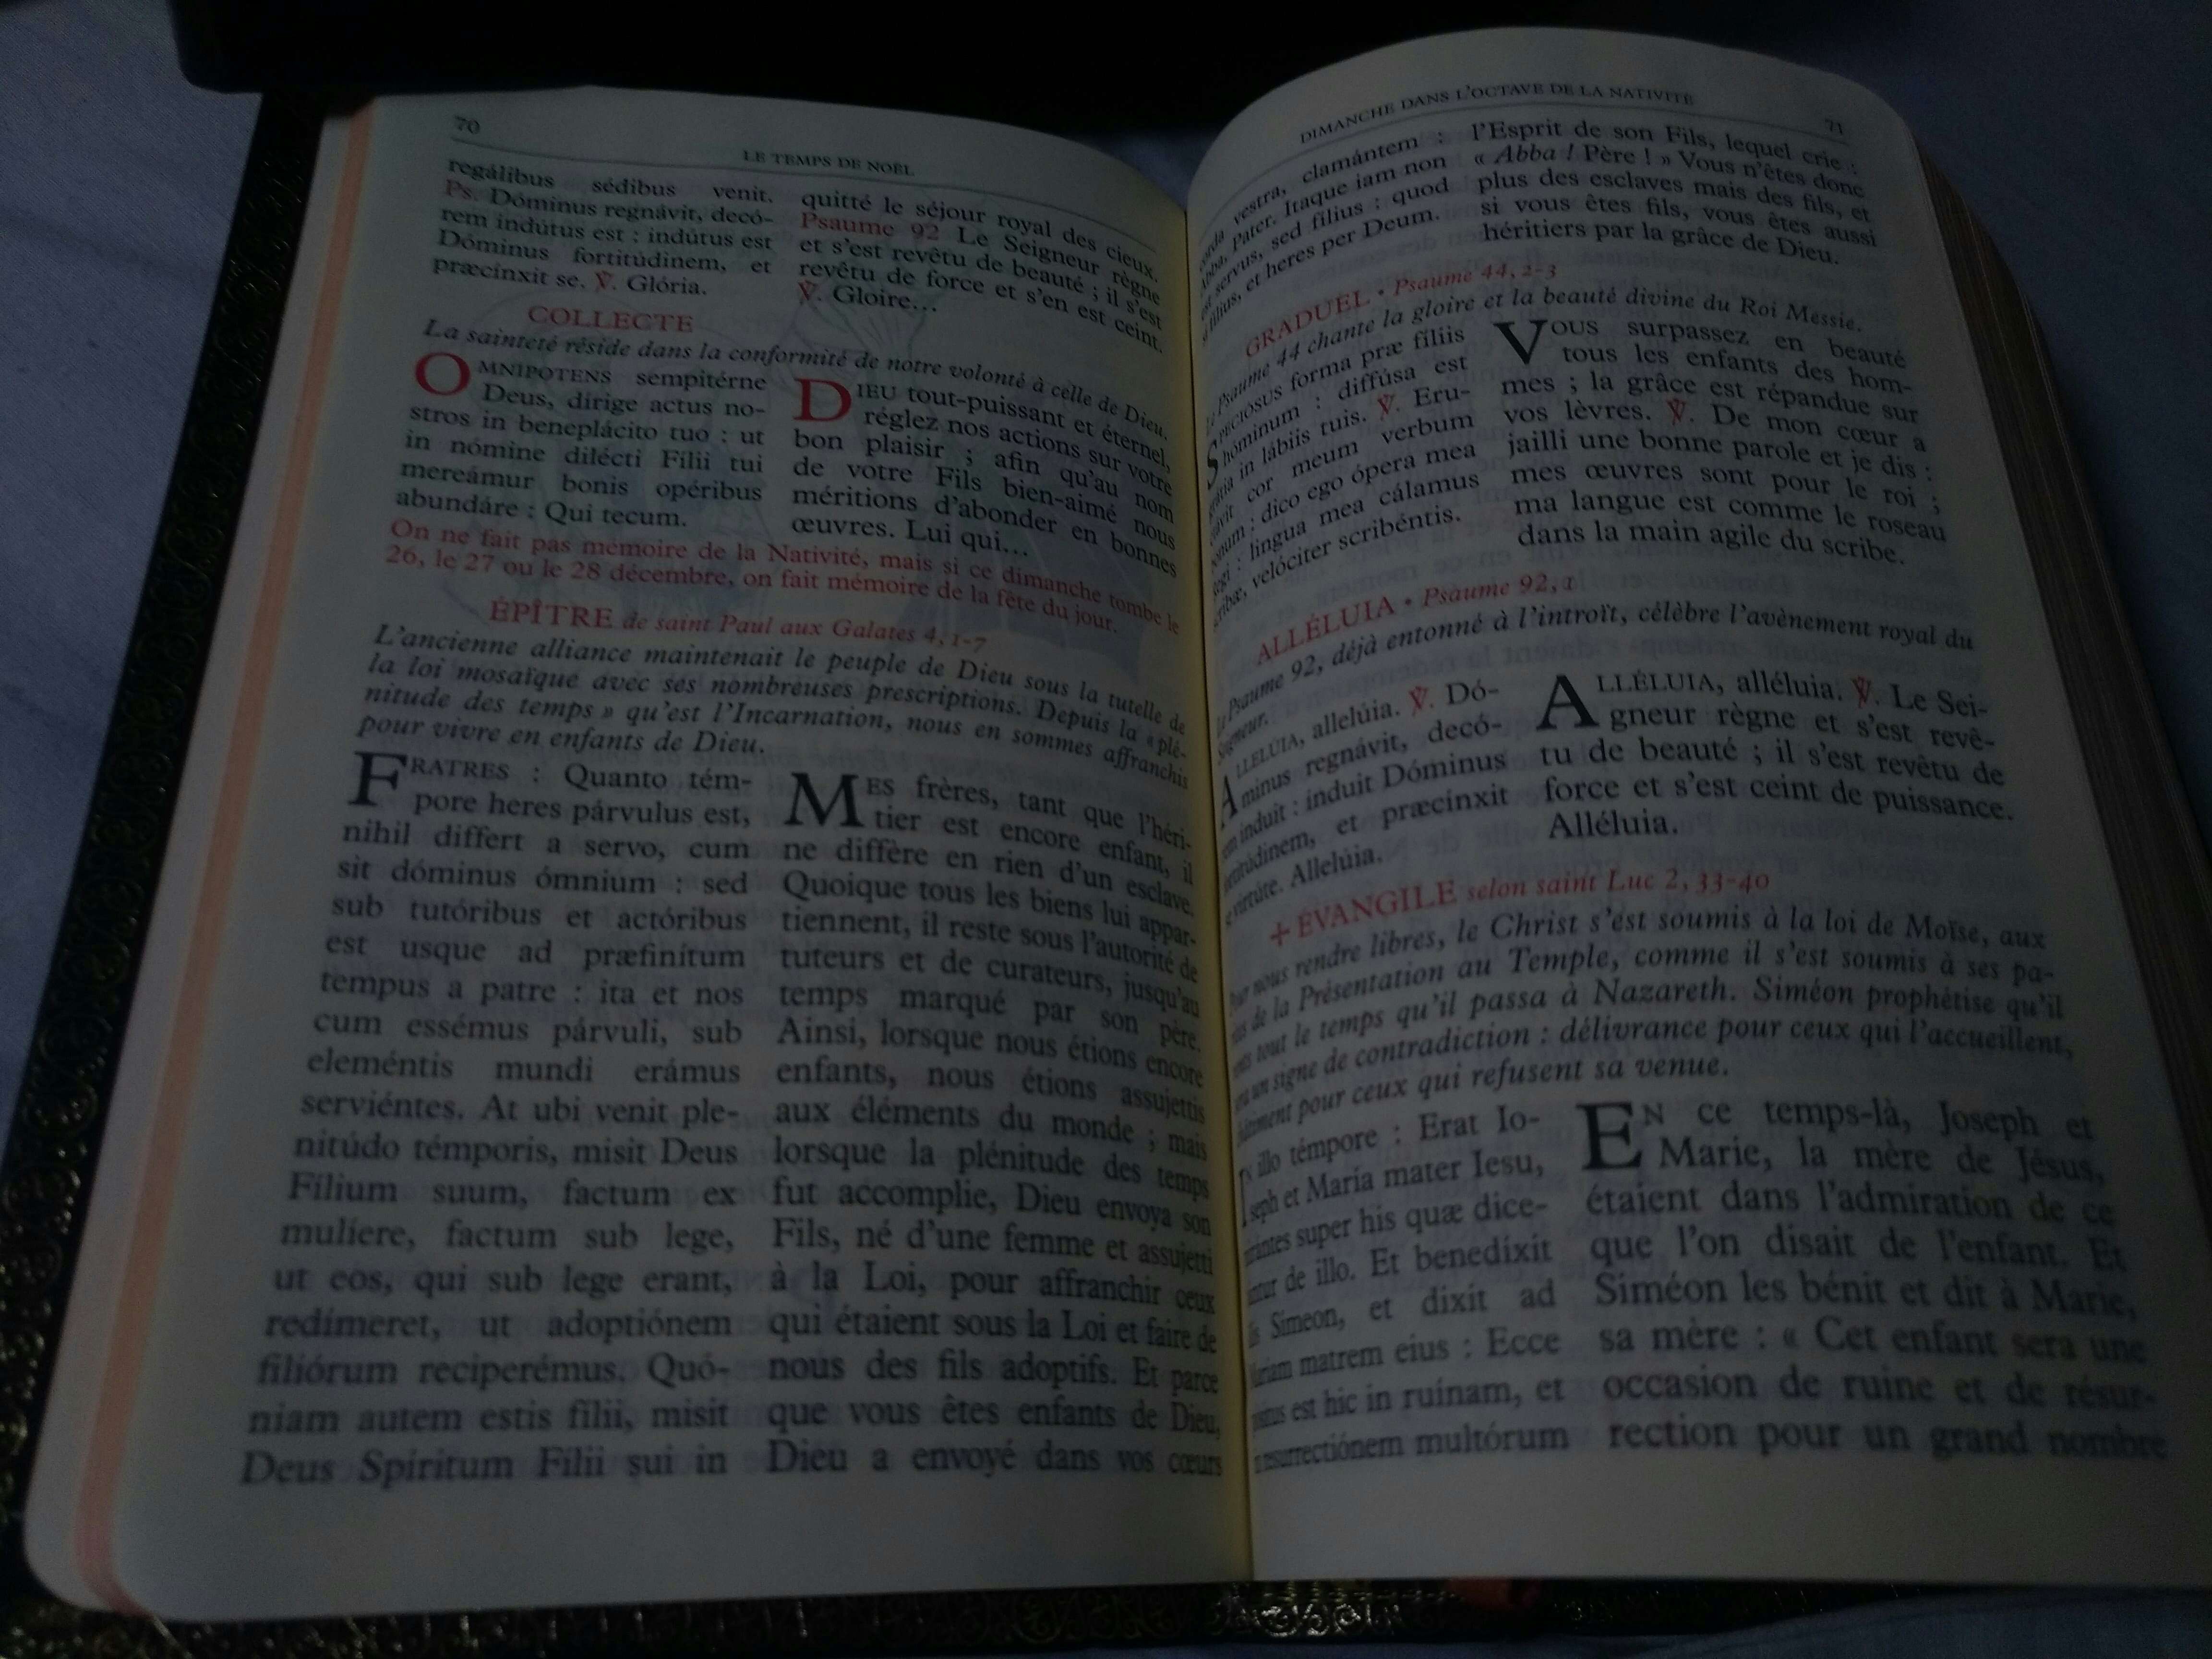 70
LE TEMPS DE NOËL
regálibus sédibus venit.
Ps. Dóminus regnávit, decó-
rem indútus est : indútus est
Dóminus fortitúdinem, et
præcínxit se. ℣. Glória.
quitté le séjour royal des cieux.
Psaume 92 Le Seigneur règne
et s'est revêtu de beauté ; il s'est
revêtu de force et s'en est ceint.
℣. Gloire…
COLLECTE
La sainteté réside dans la conformité de notre volonté à celle de Dieu.
OMNIPOTENS sempitérne
Deus, dirige actus no-
stros in beneplácito tuo : ut
in nómine dilécti Fílii tui
mereámur bonis opéribus
abundáre : Qui tecum.
DIEU tout-puissant et éternel,
réglez nos actions sur votre
bon plaisir ; afin qu'au nom
de votre Fils bien-aimé nous
méritions d'abonder en bonnes
œuvres. Lui qui…
On ne fait pas mémoire de la Nativité, mais si ce dimanche tombe le
26, le 27 ou le 28 décembre, on fait mémoire de la fête du jour.
ÉPÎTRE de saint Paul aux Galates 4, 1-7
L'ancienne alliance maintenait le peuple de Dieu sous la tutelle de
la loi mosaïque avec ses nombreuses prescriptions. Depuis la « plé-
nitude des temps » qu'est l'Incarnation, nous en sommes affranchis
pour vivre en enfants de Dieu.
FRATRES : Quanto tém-
pore heres párvulus est,
nihil differt a servo, cum
sit dóminus ómnium : sed
sub tutóribus et actóribus
est usque ad præfinítum
tempus a patre : ita et nos
cum essémus párvuli, sub
eleméntis mundi erámus
serviéntes. At ubi venit ple-
nitúdo témporis, misit Deus
Fílium suum, factum ex
muliere, factum sub lege,
ut eos, qui sub lege erant,
redímeret, ut adoptiónem
filiórum reciperémus. Quó-
niam autem estis fílii, misit
Deus Spíritum Fílii sui in
MES frères, tant que l'héri-
tier est encore enfant, il
ne diffère en rien d'un esclave.
Quoique tous les biens lui appar-
tiennent, il reste sous l'autorité de
tuteurs et de curateurs, jusqu'au
temps marqué par son père.
Ainsi, lorsque nous étions encore
enfants, nous étions assujettis
aux éléments du monde ; mais
lorsque la plénitude des temps
fut accomplie, Dieu envoya son
Fils, né d'une femme et assujetti
à la Loi, pour affranchir ceux
qui étaient sous la Loi et faire de
nous des fils adoptifs. Et parce
que vous êtes enfants de Dieu,
Dieu a envoyé dans vos cœurs
DIMANCHE DANS L'OCTAVE DE LA NATIVITÉ
71
corda vestra, clamántem :
Abba, Pater. Itaque iam non
est servus, sed fílius : quod
si fílius, et heres per Deum.
l'Esprit de son Fils, lequel crie :
« Abba ! Père ! » Vous n'êtes donc
plus des esclaves mais des fils, et
si vous êtes fils, vous êtes aussi
héritiers par la grâce de Dieu.
GRADUEL • Psaume 44, 2-3
Le Psaume 44 chante la gloire et la beauté divine du Roi Messie.
SPECIÓSUS forma præ fíliis
hóminum : diffúsa est
grátia in lábiis tuis. ℣. Eru-
ctávit cor meum verbum
bonum : dico ego ópera mea
regi : lingua mea cálamus
scribæ, velóciter scribéntis.
VOUS surpassez en beauté
tous les enfants des hom-
mes ; la grâce est répandue sur
vos lèvres. ℣. De mon cœur a
jailli une bonne parole et je dis :
mes œuvres sont pour le roi ;
ma langue est comme le roseau
dans la main agile du scribe.
ALLÉLUIA • Psaume 92, 1
Le Psaume 92, déjà entonné à l'introït, célèbre l'avènement royal du
Seigneur.
ALLELÚIA, allelúia. ℣. Dó-
minus regnávit, decó-
rem índuit : índuit Dóminus
fortitúdinem, et præcínxit
se virtúte. Allelúia.
ALLÉLUIA, alléluia. ℣. Le Sei-
gneur règne et s'est revê-
tu de beauté ; il s'est revêtu de
force et s'est ceint de puissance.
Alléluia.
+ ÉVANGILE selon saint Luc 2, 33-40
Pour nous rendre libres, le Christ s'est soumis à la loi de Moïse, aux
de la Présentation au Temple, comme il s'est soumis à ses pa-
rents tout le temps qu'il passa à Nazareth. Siméon prophétise qu'il
sera un signe de contradiction : délivrance pour ceux qui l'accueillent,
châtiment pour ceux qui refusent sa venue.
IN illo témpore : Erat Io-
seph et María mater Iesu,
mirántes super his quæ dice-
bántur de illo. Et benedíxit
illis Símeon, et dixit ad
Maríam matrem eius : Ecce
pósitus est hic in ruínam, et
in resurrectiónem multórum
EN ce temps-là, Joseph et
Marie, la mère de Jésus,
étaient dans l'admiration de ce
que l'on disait de l'enfant. Et
Siméon les bénit et dit à Marie,
sa mère : « Cet enfant sera une
occasion de ruine et de résur-
rection pour un grand nombre